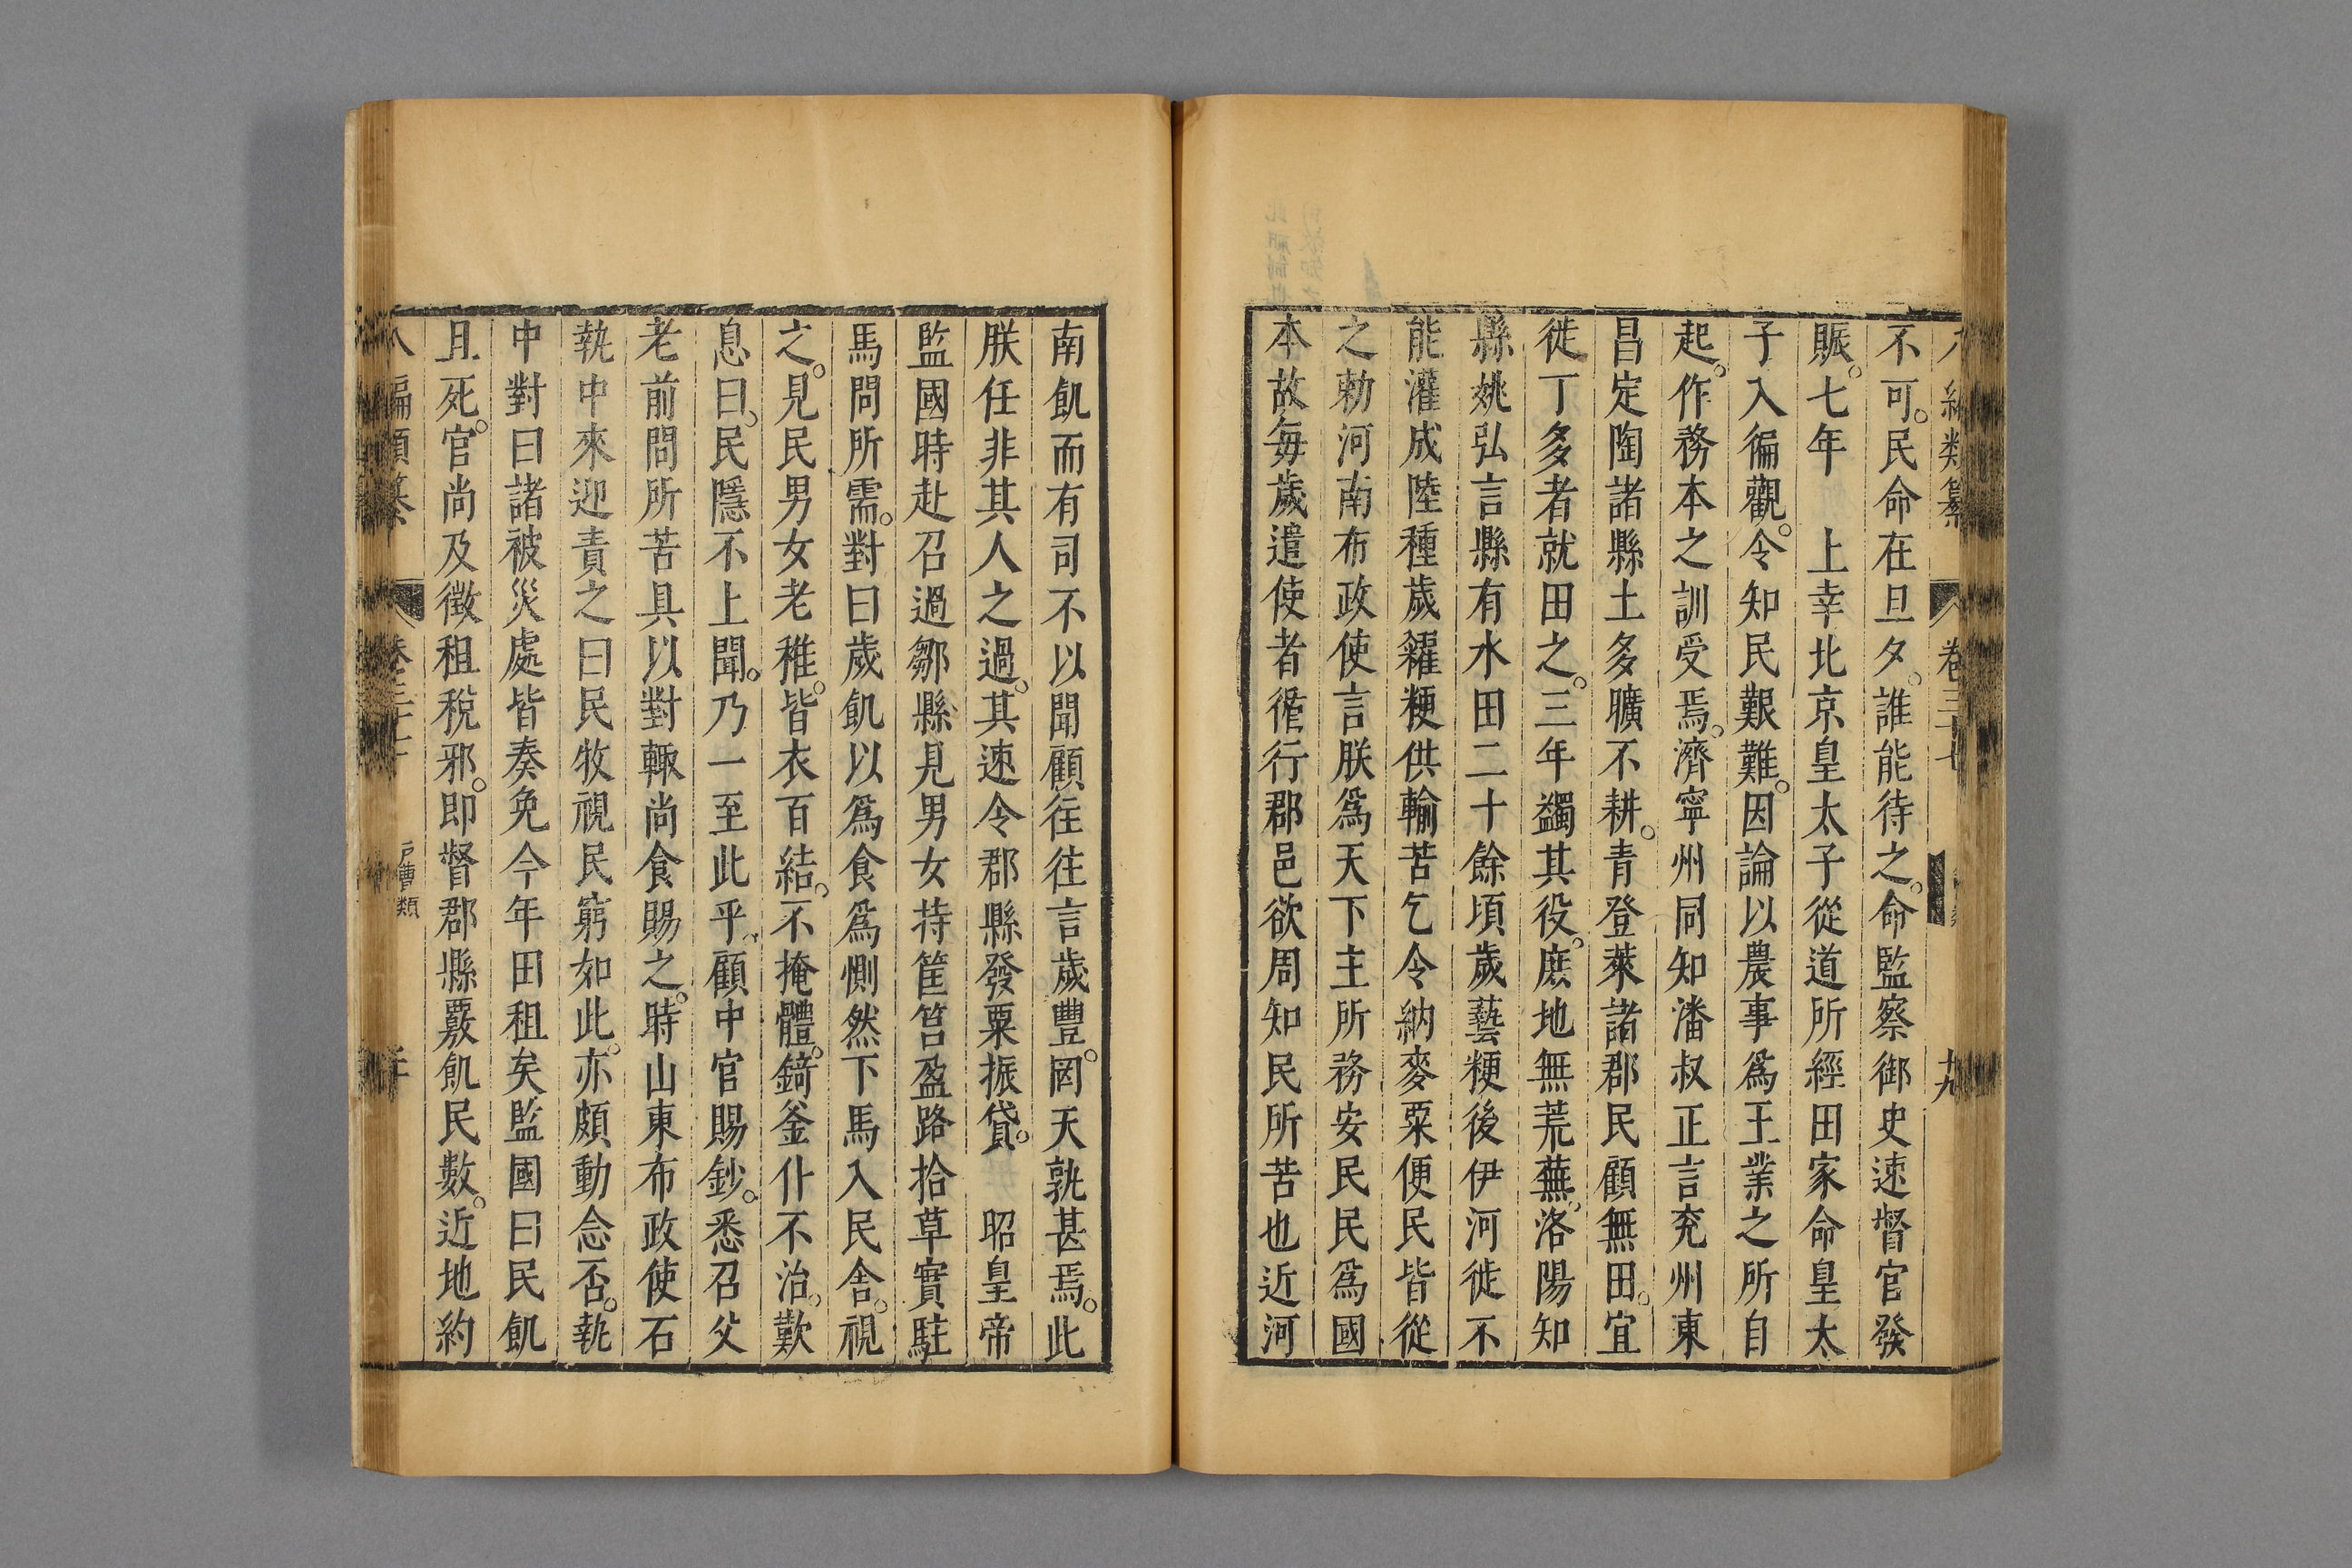 編類纂 卷三十七 十九
不可。民命在旦夕。誰能待之。命監察御史速督官發
賑。七年 上幸北京皇太子從道所經田家命皇太
子入徧觀。令知民艱難。因論以農事爲王業之所自
起。作務本之訓受焉。濟寧州同知潘叔正言兖州東
昌定陶諸縣土多曠不耕。青登萊諸郡民顧無田。宜
徙丁多者就田之。三年蠲其役。庶地無荒蕪。洛陽知
縣姚弘言縣有水田二十餘頃歲藝粳後伊河徙不
能灌成陸種歲糴粳供輸苦乞令納麥粟便民皆從
之勅河南布政使言朕爲天下主所務安民民爲國
本故每歲遣使者循行郡邑欲周知民所苦也近河
南飢而有司不以聞顧往往言歲豐。罔天孰甚焉。此
朕任非其人之過。其速令郡縣發粟振貸。 昭皇帝
監國時赴召過鄒縣見男女持筐筥盈路拾草實駐
馬問所需。對曰歲飢以爲食爲惻然下馬入民舍。視
之。見民男女老稚。皆衣百結。不掩體。錡釜什不治。歎
息曰。民隱不上聞。乃一至此乎。顧中官賜鈔。悉召父
老前問所苦具以對輙尚食賜之。時山東布政使石
執中來迎責之曰民牧視民窮如此。亦頗動念否。執
中對曰諸被災處皆奏免今年田租矣監國曰民飢
且死。官尚及徵租稅邪。即督郡縣覈飢民數。近地約
編類纂 卷三十 戶曹類